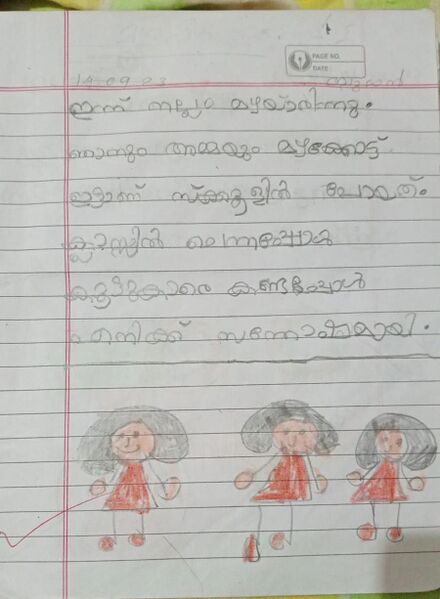 PAGE NO.
DATE:
14.09.23
ഇന്ന് നല്ല മഴയായിരുന്നു.
ഞാനും അമ്മയും മഴക്കോട്ട്
ഇട്ടാണ് സ്ക്കൂളിൽ പോയത്.
ക്ലാസ്സിൽ ചെന്നപ്പോൾ
കൂട്ടുകാരെ കണ്ടപ്പോൾ
എനിക്ക് സന്തോഷമായി.